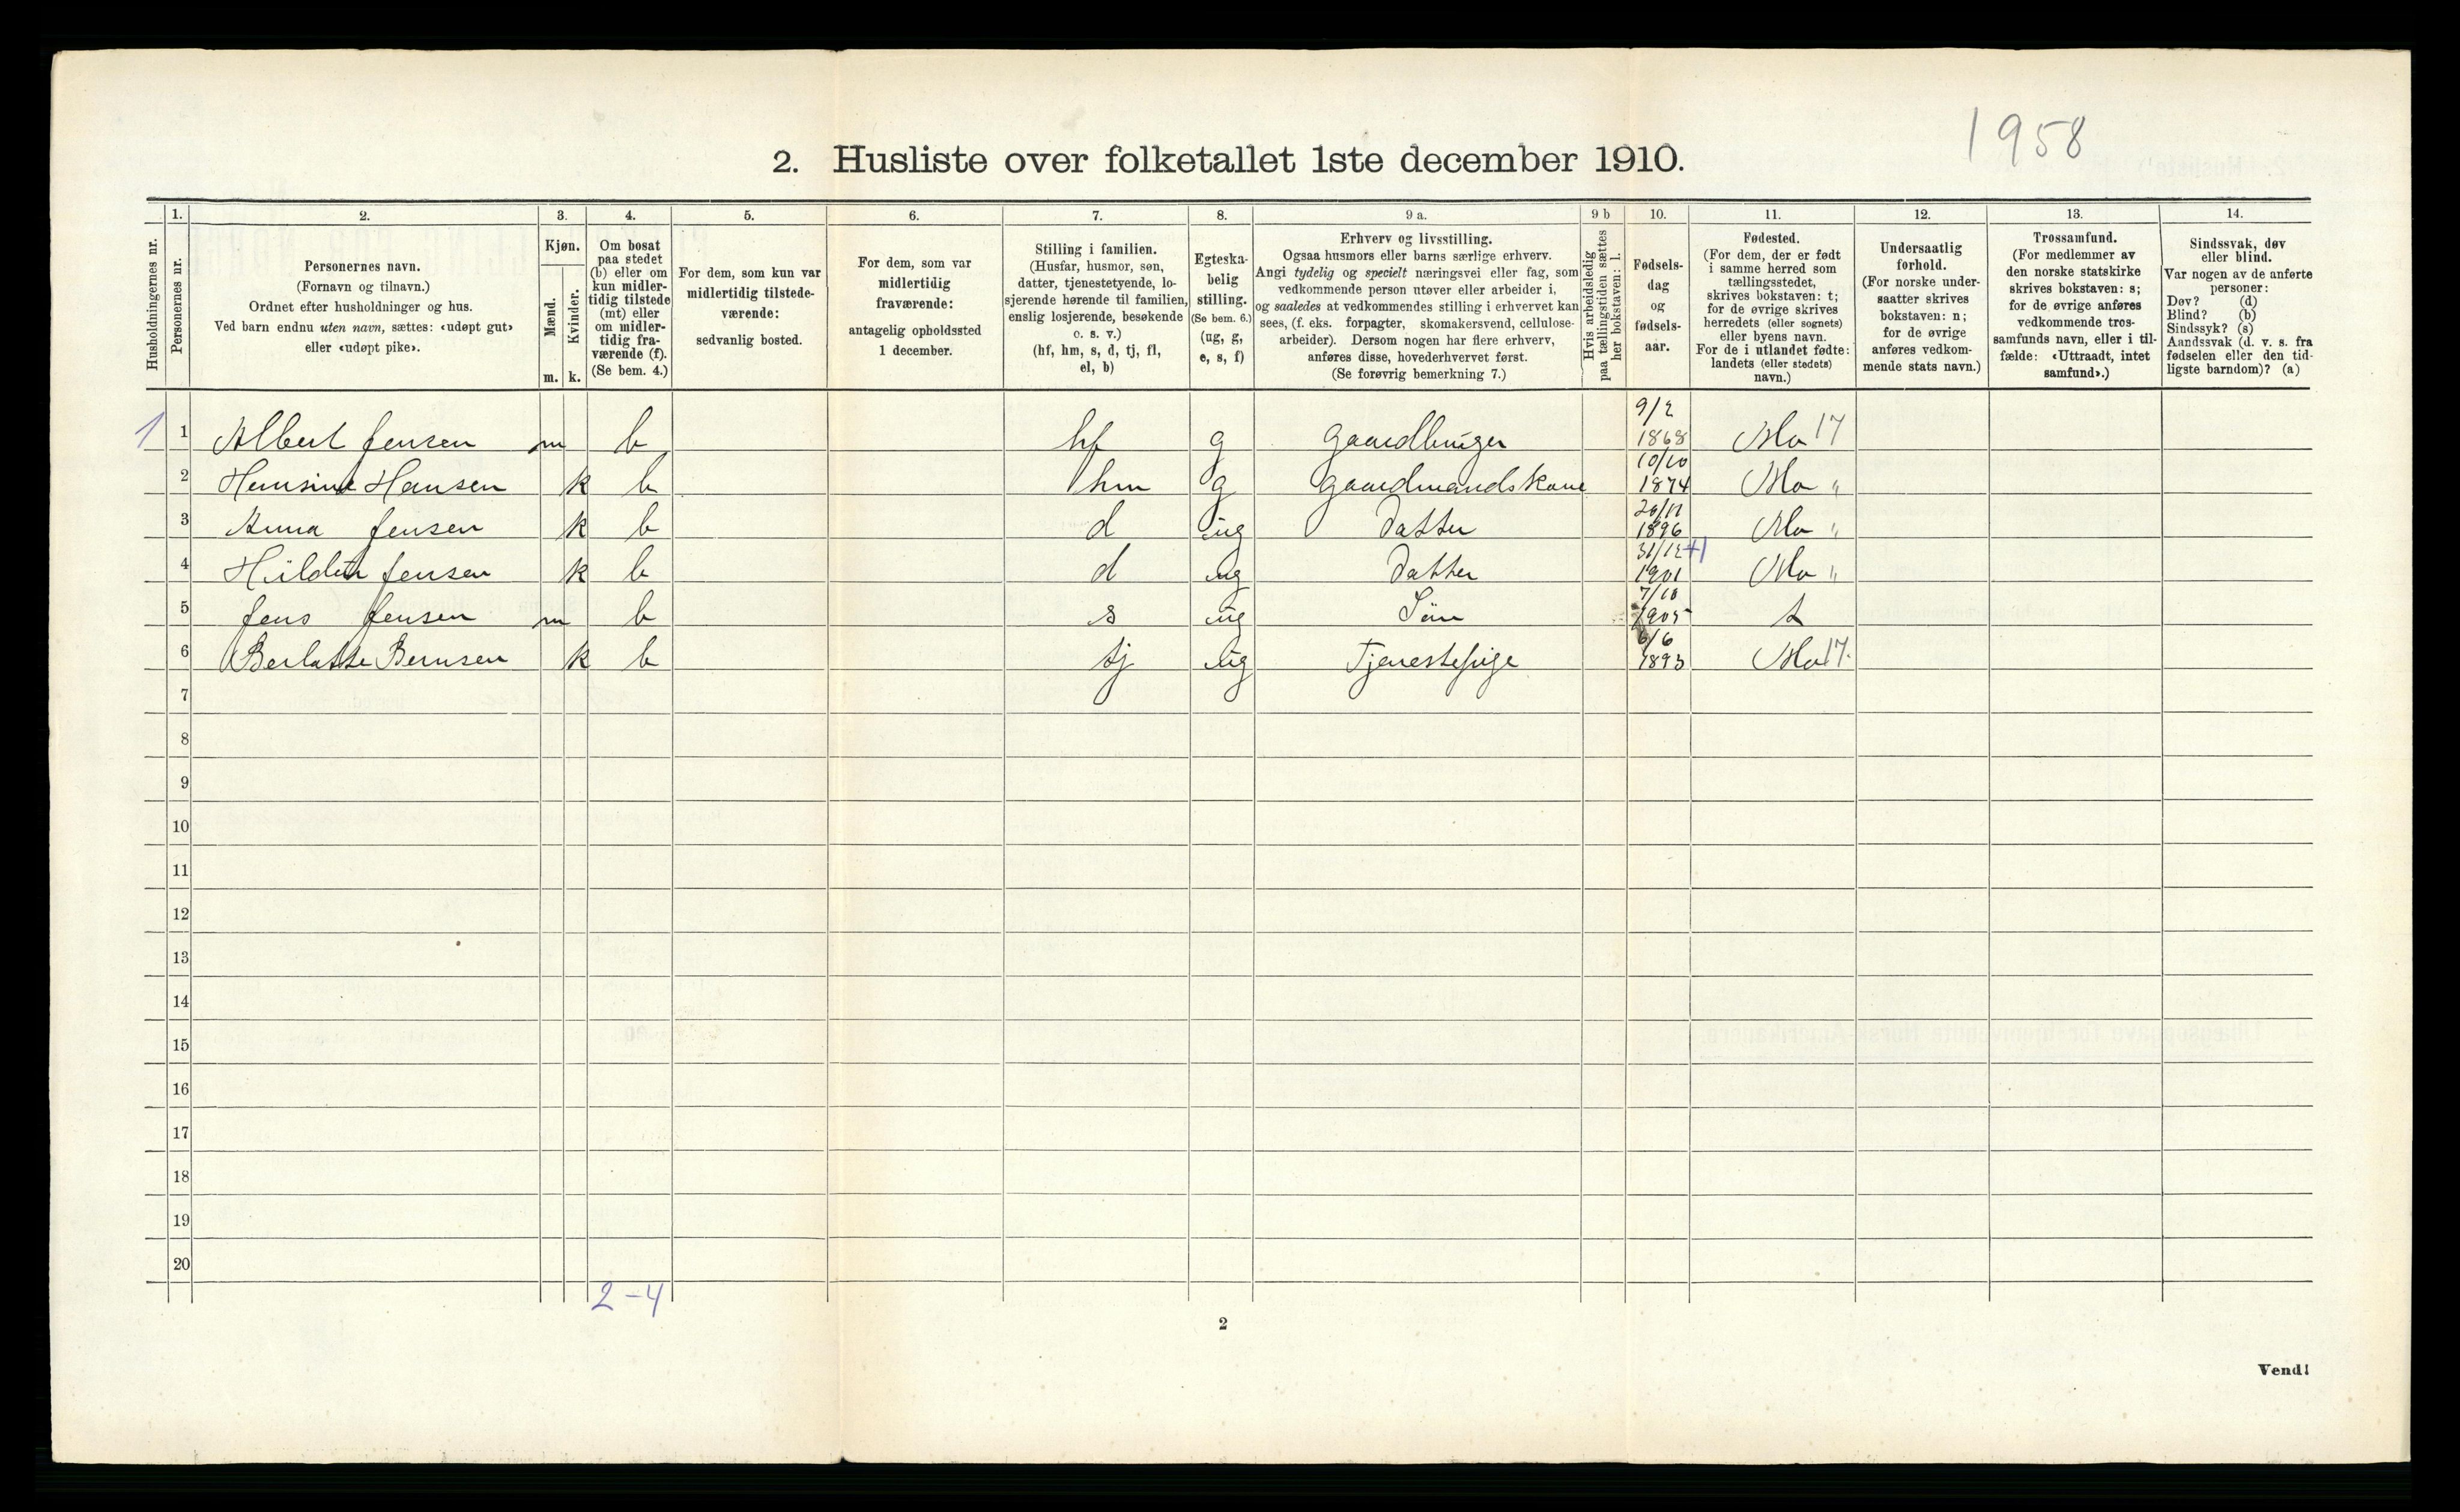 1958
2. Husliste over folketallet 1ste december 1910.
1. 2. 3. 4. 5. 6. 7. 8. 9 a. 9 b 10. 11. 12. 13. 14.
Husholdningernes nr.
Personernes nr.
Personernes navn.
(Fornavn og tilnavn.)
Ordnet efter husholdninger og hus.
Ved barn endnu uten navn, sættes: «udøpt gut»
eller «udøpt pike».
Kjøn.
Mænd.
Kvinder.
m. k.
Om bosat
paa stedet
(b) eller om
kun midler-
tidig tilstede
(mt) eller
om midler-
tidig fra-
værende (f).
(Se bem. 4.)
For dem, som kun var
midlertidig tilstede-
værende:
sedvanlig bosted.
For dem, som var
midlertidig
fraværende:
antagelig opholdssted
1 december.
Stilling i familien.
(Husfar, husmor, søn,
datter, tjenestetyende, lo-
sjerende hørende til familien,
enslig losjerende, besøkende
o. s. v.)
(hf, hm, s, d, tj, fl,
el, b)
Egteska-
belig
stilling.
(Se bem. 6.)
(ug, g,
e, s, f)
Erhverv og livsstilling.
Ogsaa husmors eller barns særlige erhverv.
Angi tydelig og specielt næringsvei eller fag, som
vedkommende person utøver eller arbeider i,
og saaledes at vedkommendes stilling i erhvervet kan
sees, (f. eks. forpagter, skomakersvend, cellulose-
arbeider). Dersom nogen har flere erhverv,
anføres disse, hovederhvervet først.
(Se forøvrig bemerkning 7.)
Hvis arbeidsledig
paa tællingstiden sættes
her bokstaven: l.
Fødsels-
dag
og
fødsels-
aar.
Fødested.
(For dem, der er født
i samme herred som
tællingsstedet,
skrives bokstaven: t;
for de øvrige skrives
herredets (eller sognets)
eller byens navn.
For de i utlandet fødte:
landets (eller stedets)
navn.)
Undersaatlig
forhold.
(For norske under-
saatter skrives
bokstaven: n;
for de øvrige
anføres vedkom-
mende stats navn.)
Trossamfund.
(For medlemmer av
den norske statskirke
skrives bokstaven: s;
for de øvrige anføres
vedkommende tros-
samfunds navn, eller i til-
fælde: «Uttraadt, intet
samfund».)
Sindssvak, døv
eller blind.
Var nogen av de anførte
personer:
Døv? (d)
Blind? (b)
Sindssyk? (s)
Aandssvak (d. v. s. fra
fødselen eller den tid-
ligste barndom)? (a)
1 1 Albert Jensen m b hf g gaardbruger 9/2 1868 Mo 17
2 Hansen k b hm g gaardmandskone 10/10 1874 Mo "
3 Anna Jensen k b d ug Datter 1896 Mo "
4 Jensen k b d ug Datter 31/12 1901 Mo "
5 Jens Jensen m b s ug Søn 1905 t
6 k b tj ug Tjenestepige 6/6 1893 Mo 17.
7
8
9
10
11
12
13
14
15
16
17
18
19
20
2-4
2
Vend!